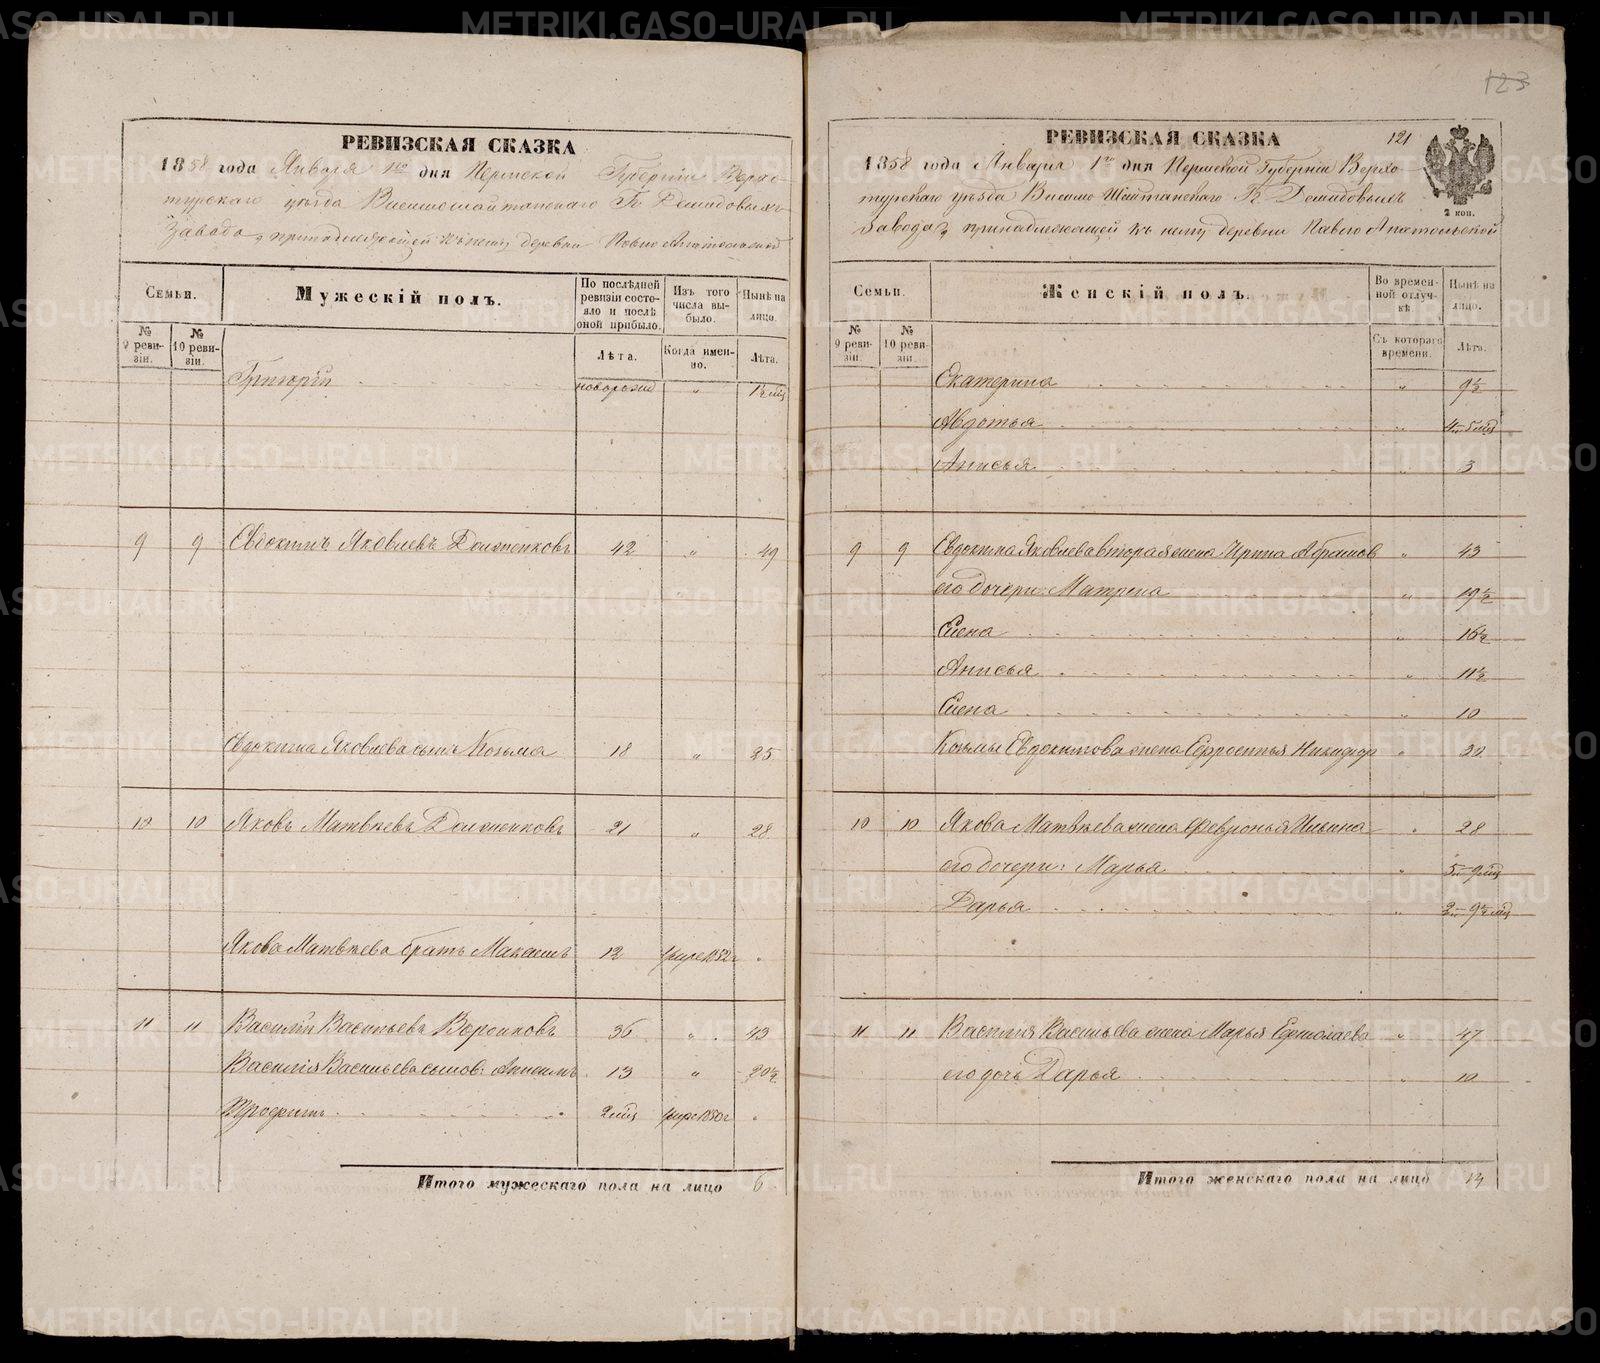 РЕВИЗСКАЯ СКАЗКА
1858 года Января 1го дня Пермской Губерніи Верхо-
турскаго уѣзда Висимошайтанскаго Г. Демидовыхъ
Завода, принадлежащей къ нему деревни Павло Анатольской
Семьи.
Мужескій полъ.
По послѣдней ревизіи состояло и послѣ оной прибыло.
Изъ того числа выбыло.
Нынѣ на лицо.
№ 9 ревизіи.
№ 10 ревизіи.
Лѣта.
Когда именно.
Лѣта.
Григорій новорожд " 1½ мц
9 9 Евдокимъ Яковлевъ Долженковъ 42 " 49
Евдокима Яковлева сынъ Козьма 18 " 25
10 10 Яковъ Матвѣевъ Долженковъ 21 " 28
Якова Матвѣева братъ Максимъ 12 умре 1852 г
11 11 Василій Васильевъ Ворсинковъ 36 " 43
Василія Васильева сынов: Анисимъ 13 " 20½
2 мц умре 1850 г
Итого мужескаго пола на лицо 6
123
РЕВИЗСКАЯ СКАЗКА 121
1858 года Января 1го дня Пермской Губерніи Верхо-
турскаго уѣзда Висимо Шайтанскаго Г. Демидовыхъ
2 коп.
Завода, принадлежащей къ нему деревни Павло Анатольской
Семьи.
Женскій полъ.
Во временной отлучкѣ.
Нынѣ на лицо.
№ 9 ревизіи.
№ 10 ревизіи.
Съ котораго времени.
Лѣта.
Екатерина " 9½
Авдотья " 4 5 мц
Анисья " 3
9 9 Евдокима Яковлева вторая жена Ирина Абрамов " 43
его дочери: Матрена " 19½
Елена " 16½
Анисья " 11½
Елена " 10
Козьмы Евдокимова жена Ефросинья Никифор "
10 10 Якова Матвѣева жена Февронья Ильина " 28
его дочери: Марья " 5 9 мц
Дарья " 2 9½ мц
11 11 Василія Васильева жена Марья Ермолаева " 47
его дочь Дарья " 10
Итого женскаго пола на лицо 14
METRIKI.GASO-URAL.RU